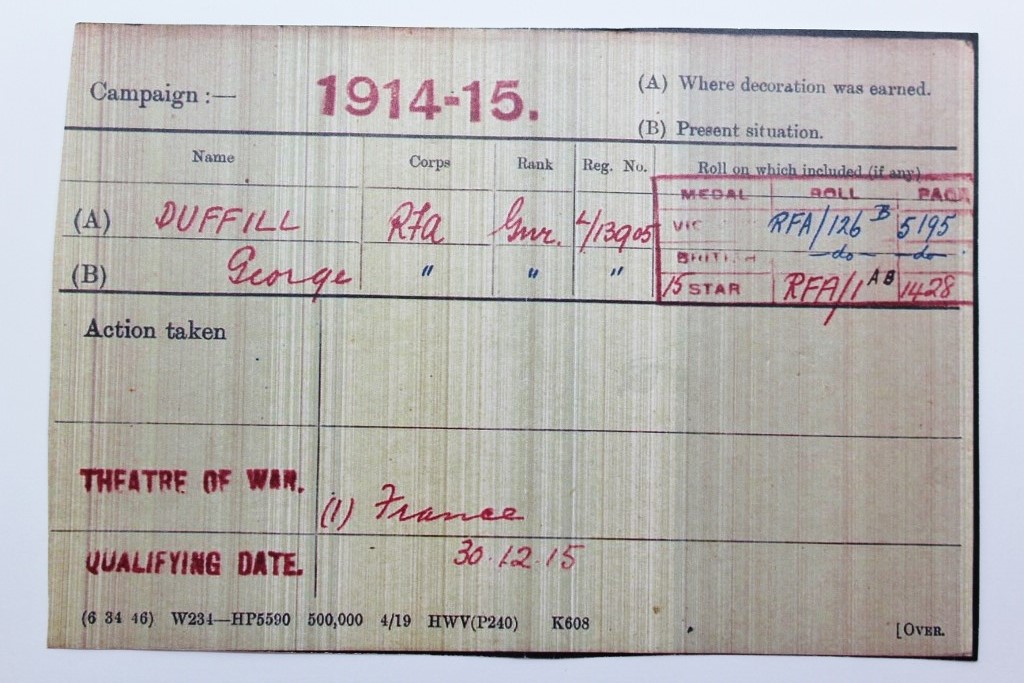 Campaign :— 1914-15. (A) Where decoration was earned.
(B) Present situation.
Name Corps Rank Reg. No. Roll on which included (if any)
MEDAL ROLL PAGE
(A) DUFFILL RFA Gnr. L/13905 VIC RFA/126 B 5195
BRITISH —do— —do—
(B) George " " " 15 STAR RFA/1 AB 1428
Action taken
THEATRE OF WAR. (1) France
QUALIFYING DATE. 30.12.15
(6 34 46) W234—HP5590 500,000 4/19 HWV(P240) K608 [OVER.